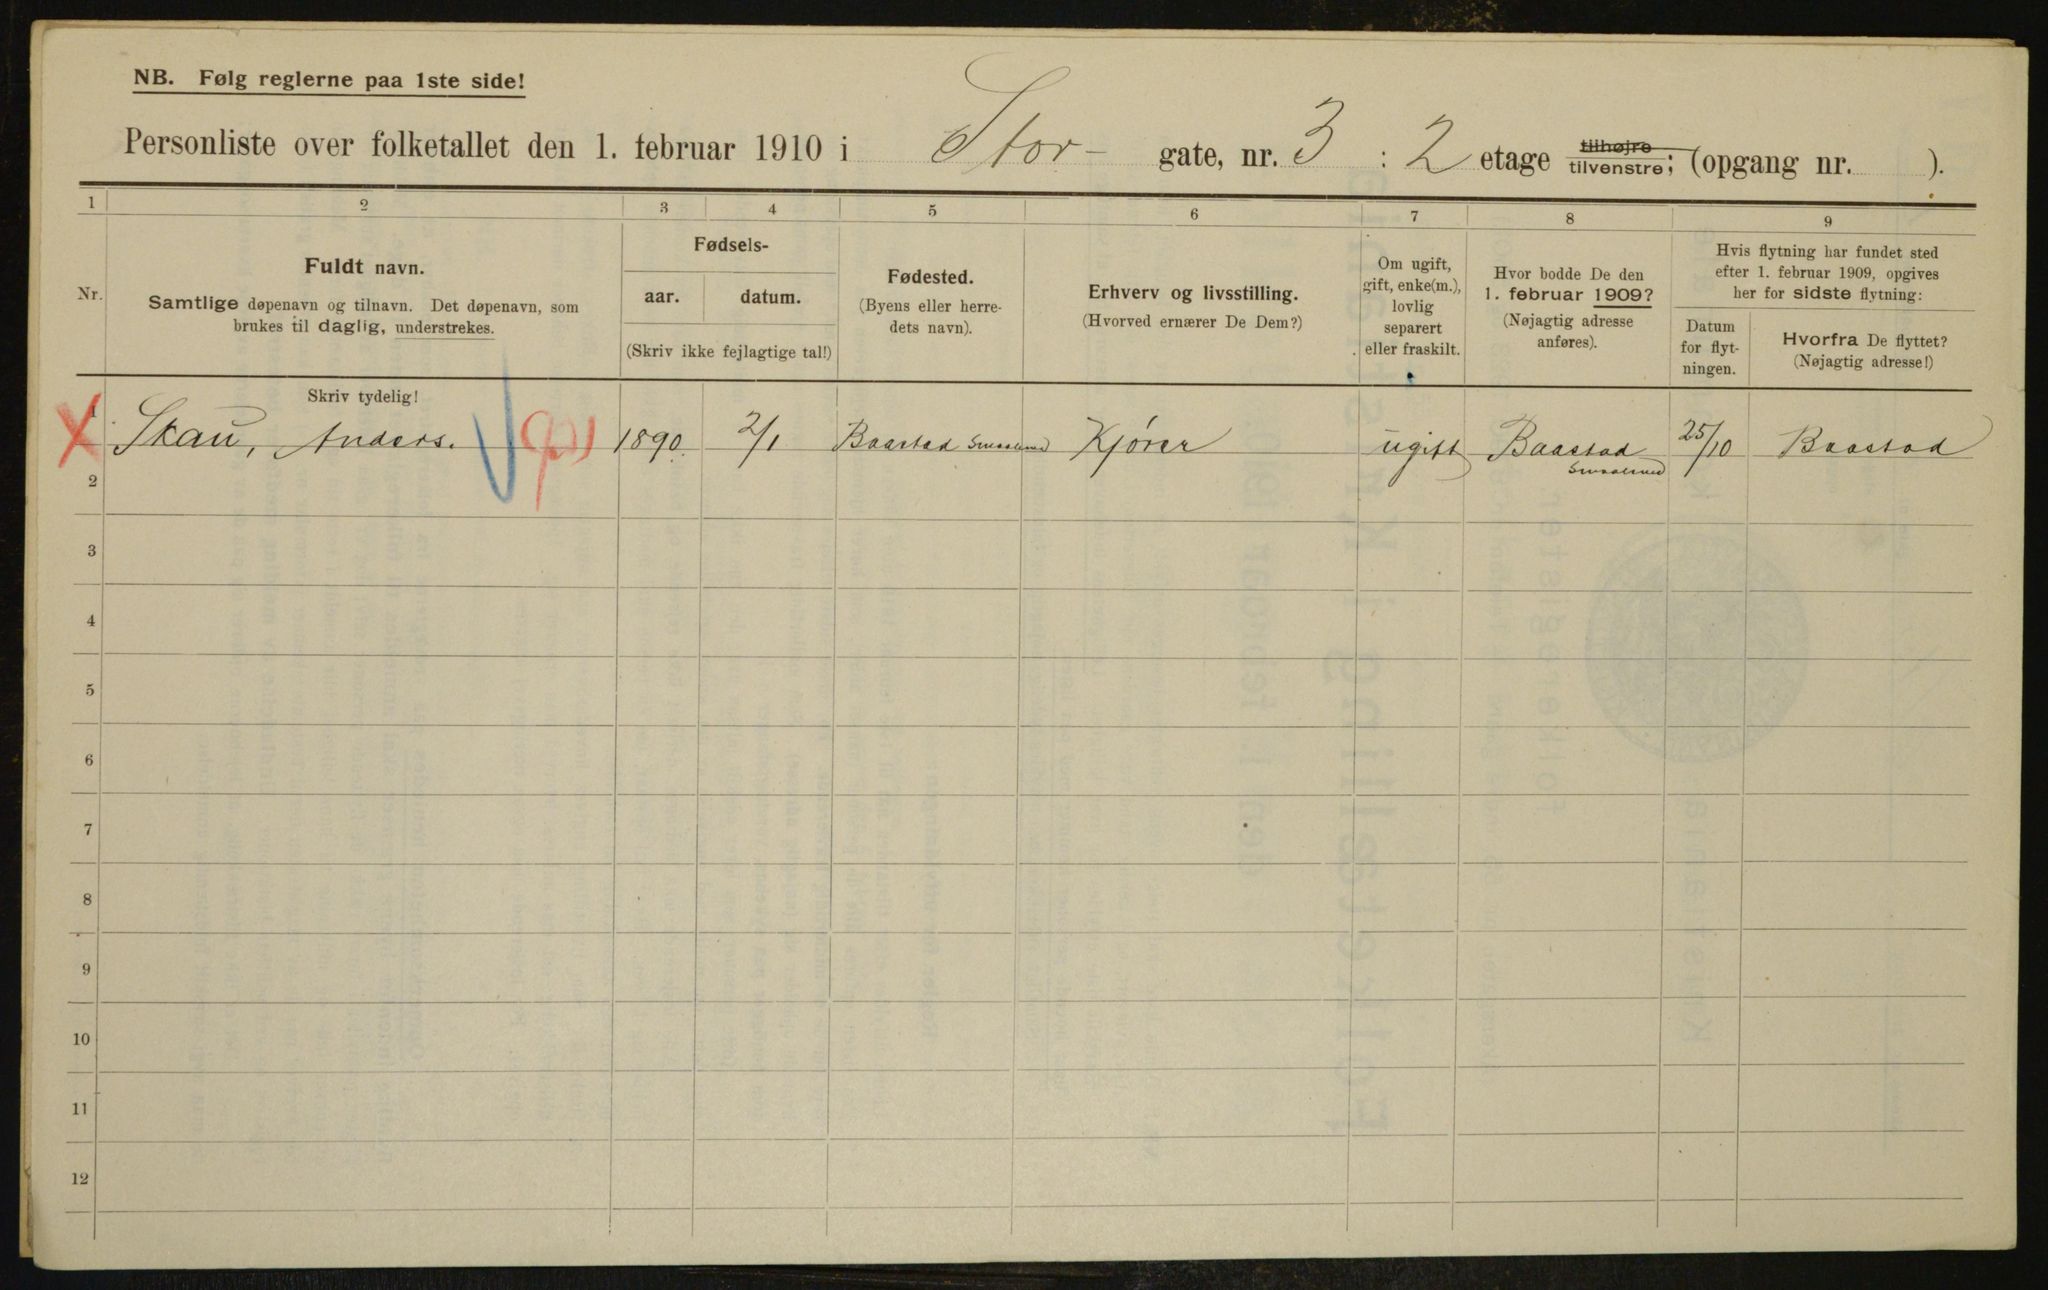 NB. Følg reglerne paa 1ste side!
Personliste over folketallet den 1. februar 1910 i Stor- gate, nr. 3 : 2 etage tilhøjre tilvenstre; (opgang nr. ).
1 2 3 4 5 6 7 8 9
Nr.
Fuldt navn.
Samtlige døpenavn og tilnavn. Det døpenavn, som
brukes til daglig, understrekes.
Skriv tydelig!
Fødsels-
aar. datum.
(Skriv ikke fejlagtige tal!)
Fødested.
(Byens eller herre-
dets navn).
Erhverv og livsstilling.
(Hvorved ernærer De Dem?)
Om ugift,
gift, enke(m.),
lovlig
separert
eller fraskilt.
Hvor bodde De den
1. februar 1909?
(Nøjagtig adresse
anføres).
Hvis flytning har fundet sted
efter 1. februar 1909, opgives
her for sidste flytning:
Datum
for flyt-
ningen.
Hvorfra De flyttet?
(Nøjagtig adresse!)
1 Skau, Anders. 1890. 2/1 Baastad Smaalene Kjører ugift Baastad Smaalene 25/10 Baastad
2
3
4
5
6
7
8
9
10
11
12